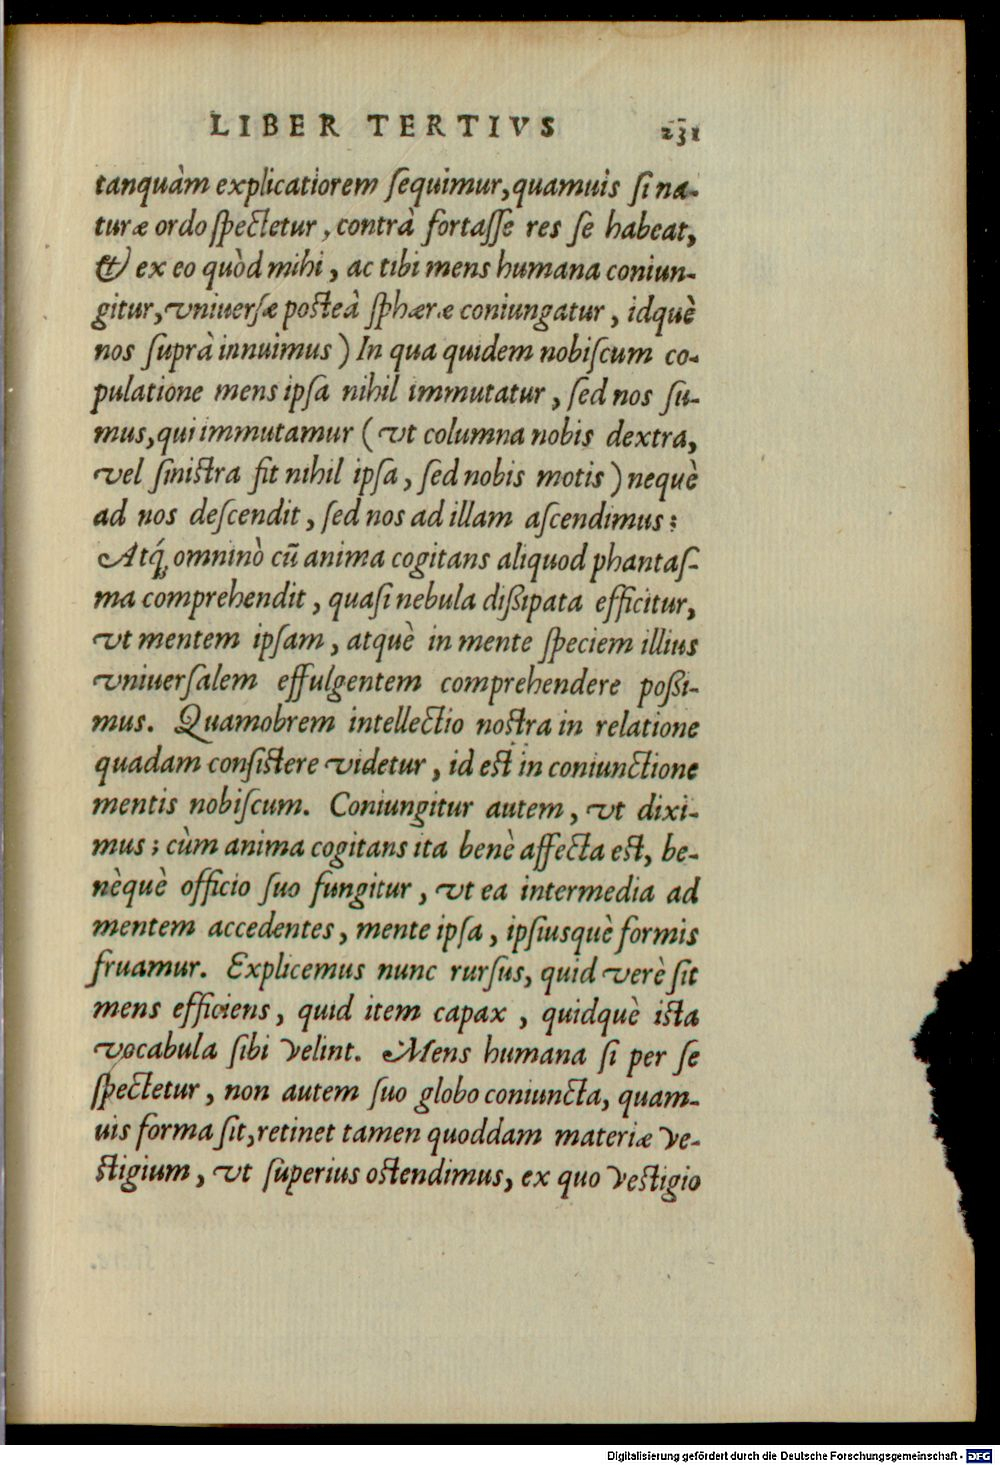 LIBER TERTIVS 231
tanquàm explicatiorem ſequimur, quamuis ſi na-
turæ ordo ſpectetur, contrà fortaſſe res ſe habeat,
& ex eo quòd mihi, ac tibi mens humana coniun-
gitur, vniuerſæ posteà ſphæræ coniungatur, idquè
nos ſuprà innuimus) In qua quidem nobiſcum co-
pulatione mens ipſa nihil immutatur, ſed nos ſu-
mus, qui immutamur (vt columna nobis dextra,
vel ſinistra fit nihil ipſa, ſed nobis motis) nequè
ad nos deſcendit, ſed nos ad illam aſcendimus:
Atq́ꝫ omninò cũ anima cogitans aliquod phantaſ-
ma comprehendit, quaſi nebula dißipata efficitur,
vt mentem ipſam, atquè in mente ſpeciem illius
vniuerſalem effulgentem comprehendere poßi-
mus. Quamobrem intellectio nostra in relatione
quadam conſistere videtur, id est in coniunctione
mentis nobiſcum. Coniungitur autem, vt dixi-
mus; cùm anima cogitans ita benè affecta est, be-
nèquè officio ſuo fungitur, vt ea intermedia ad
mentem accedentes, mente ipſa, ipſiusquè formis
fruamur. Explicemus nunc rurſus, quid verè ſit
mens efficiens, quid item capax, quidquè ista
vocabula ſibi velint. Mens humana ſi per ſe
ſpectetur, non autem ſuo globo coniuncta, quam-
uis forma ſit, retinet tamen quoddam materiæ ve-
stigium, vt ſuperius ostendimus, ex quo vestigio
Digitalisierung gefördert durch die Deutsche Forschungsgemeinschaft - DFG